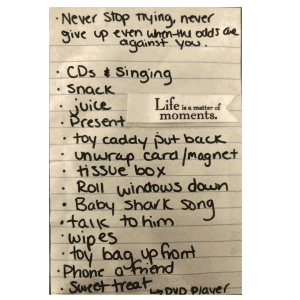 · Never Stop Trying, never
give up even when the odds are
against you.
· CDs & Singing
· Snack
· juice
Life is a matter of
moments.
· Present
· toy caddy put back
· unwrap card/magnet
· tissue box
· Roll windows down
· Baby shark song
· talk to him
· wipes
· toy bag up front
· Phone a friend
· Sweet treat ↳ DVD Player